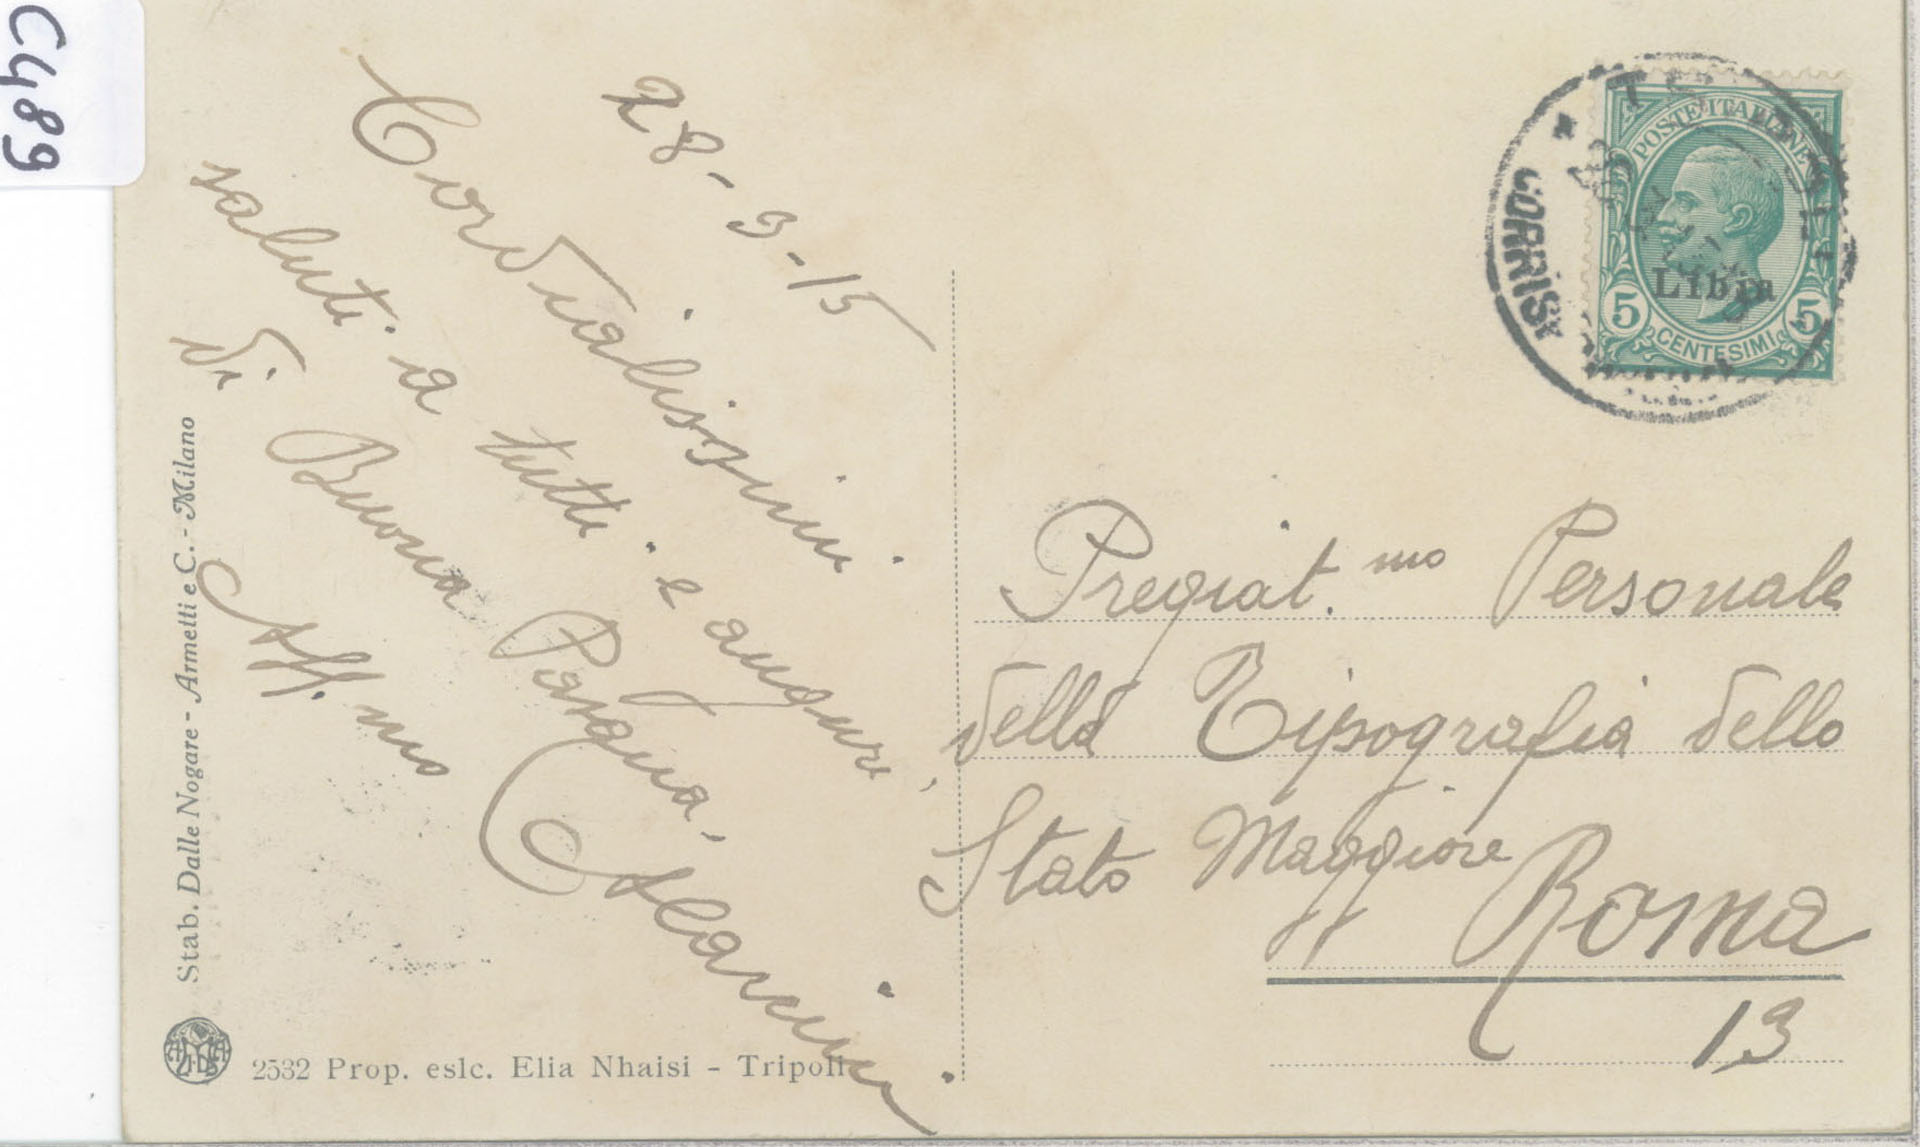 C489
28-3-15
Cordialissimi
saluti a tutti e auguri
di Buona Pasqua.
Aff.mo
Pregiat.mo Personale
della Tipografia dello
Stato Maggiore
Roma
13
POSTE ITALIANE
Libia
5 CENTESIMI 5
CORRISP
Stab. Dalle Nogare - Armetti e C. - Milano
2532 Prop. eslc. Elia Nhaisi - Tripoli